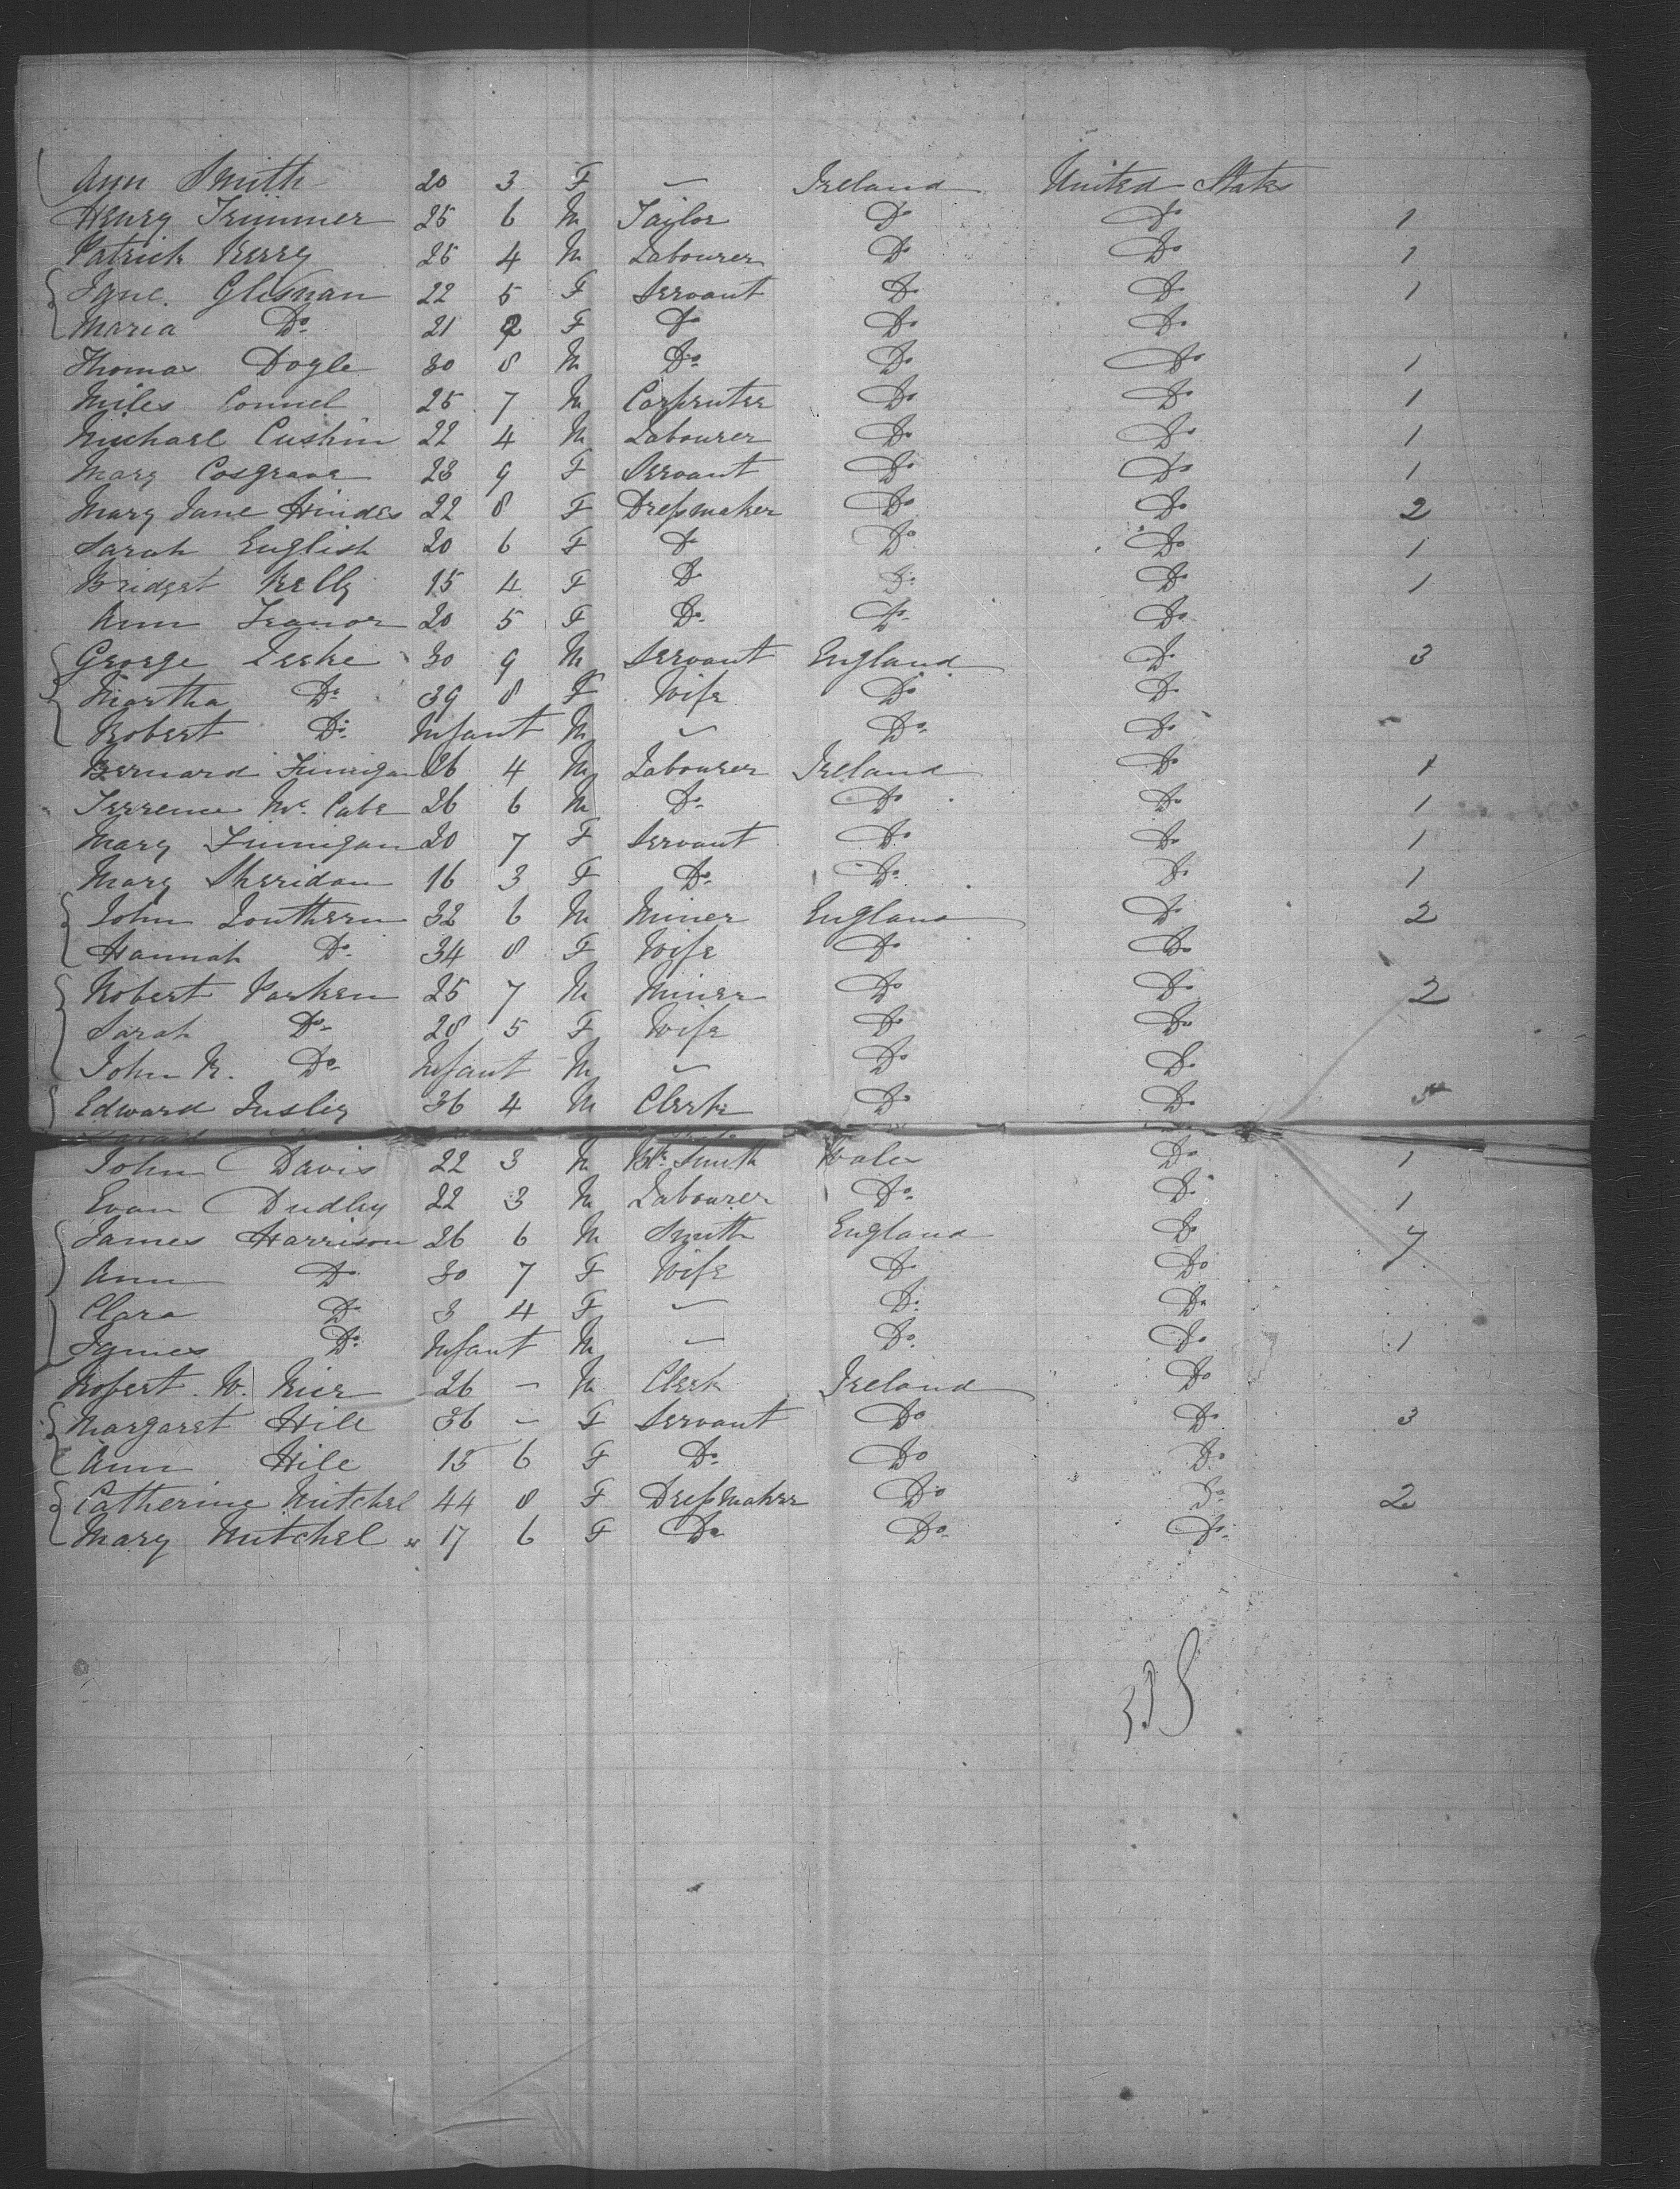 Ann Smith 20 3 F — Ireland United States
Henry Trimmer 25 6 M Tailor Do Do 1
Patrick Kerry 25 4 M Labourer Do Do 1
Jane Glisnan 22 5 F Servant Do Do 1
Maria Do 21 2 F Do Do Do
Thomas Dogle 30 8 M Do Do Do 1
Miles Connel 25 7 M Carpenter Do Do 1
Michael Cushin 22 4 M Labourer Do Do 1
Mary Cosgrave 23 9 F Servant Do Do 1
Mary Jane Hindes 22 8 F Dressmaker Do Do 2
Sarah English 20 6 F Do Do Do 1
Bridget Kelly 15 4 F Do Do Do 1
Ann Treanor 20 5 F Do Do Do
George Leeke 30 9 M Servant England Do 3
Martha Do 39 8 F Wife Do Do
Robert Do Infant M — Do Do
Bernard Finnigan 26 4 M Labourer Ireland Do 1
Terrence Mc Cabe 26 6 M Do Do Do 1
Mary Finnigan 20 7 F Servant Do Do 1
Mary Sheridan 16 3 F Do Do Do 1
John Southern 32 6 M Miner England Do 2
Hannah Do 34 8 F Wife Do Do
Robert Parken 25 7 M Miner Do Do 2
Sarah Do 28 5 F Wife Do Do
John R. Do Infant M — Do Do
Edward Insley 36 4 M Clerk Do Do
John Davis 22 3 M Blk Smith Wales Do 1
Evan Dudley 22 3 M Labourer Do Do 1
James Harrison 26 6 M Smith England Do 7
Ann Do 30 7 F Wife Do Do
Clara Do 3 4 F — Do Do
James Do Infant M — Do Do 1
Robert W. Kier 26 — M Clerk Ireland Do
Margaret Hill 36 — F Servant Do Do 3
Ann Hill 15 6 F Do Do Do
Catherine Mitchel 44 8 F Dressmaker Do Do 2
Mary Mitchel 17 6 F Do Do Do